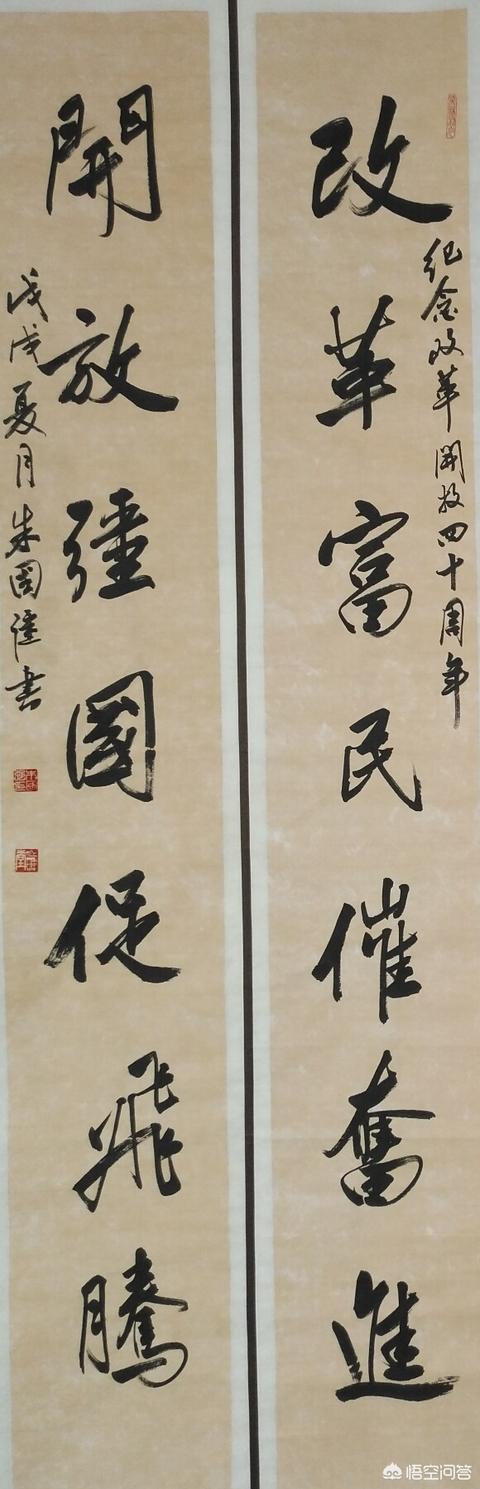 改革富民催奮進
纪念改革開放四十周年
開放強國促飛騰
戊戌夏月朱國
書
悟空问答